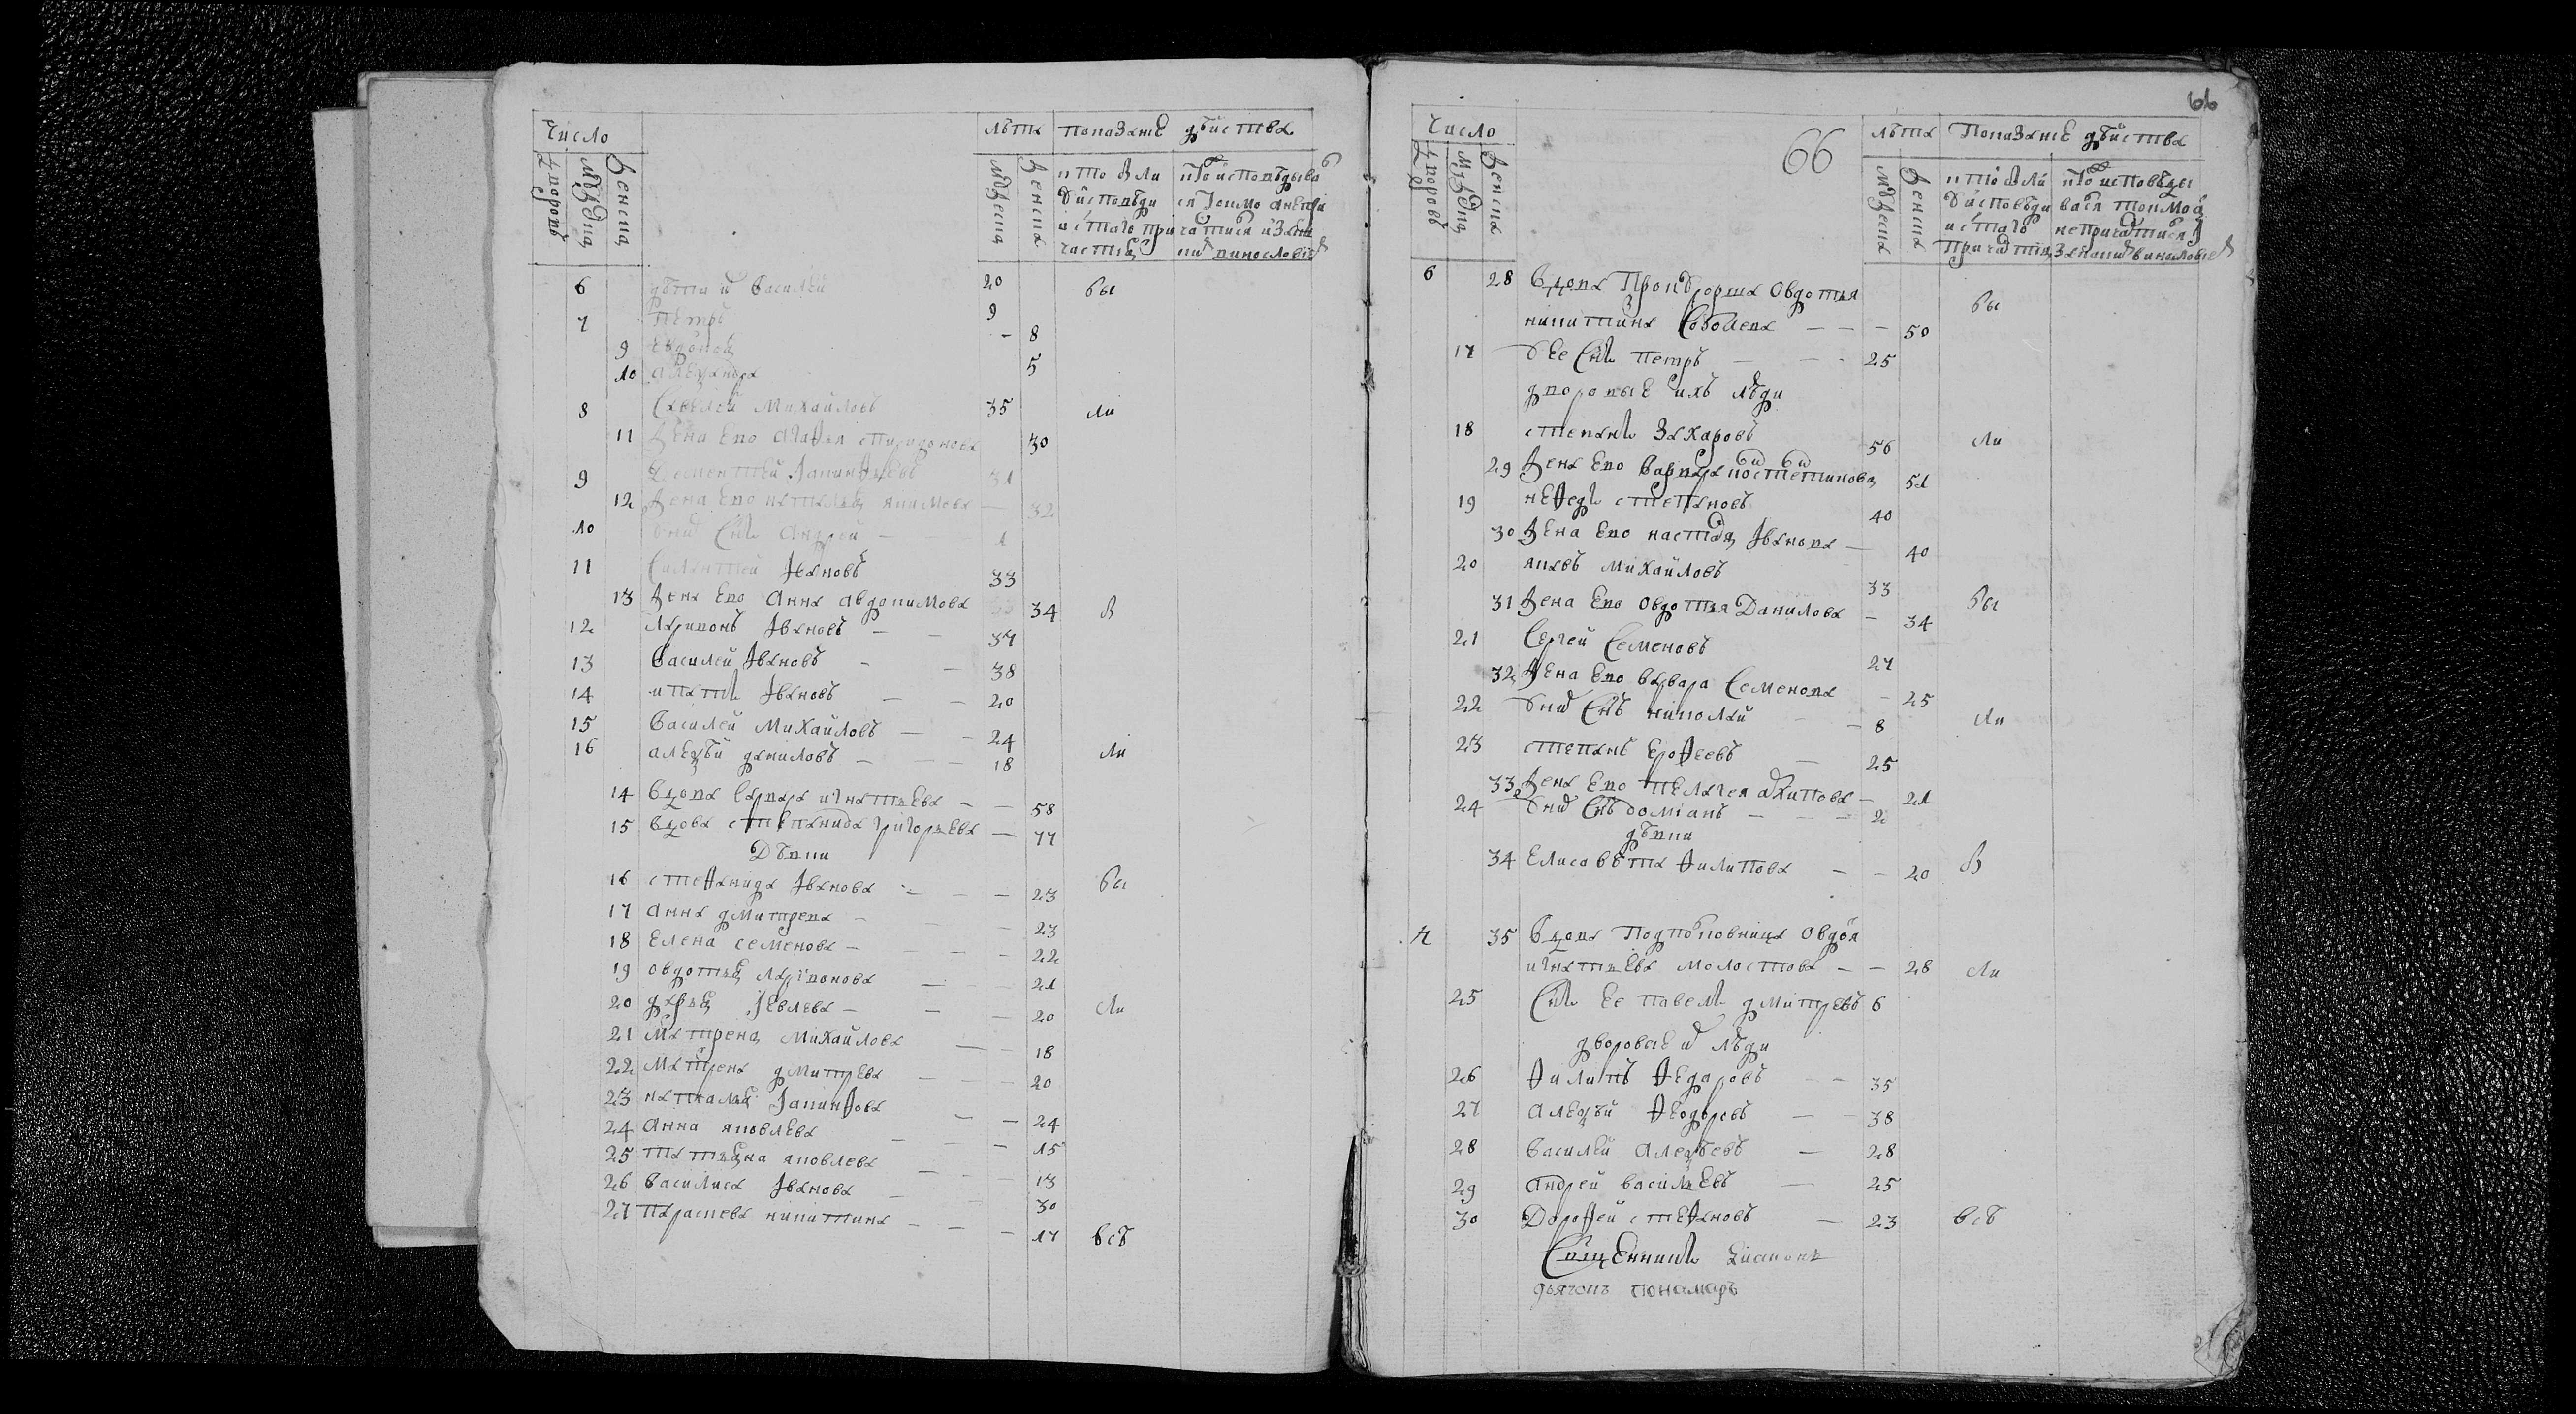 Число
лѣта показание дѣйства
дворовъ
мужска
женска
мужеска
женска
кто были
у исповѣди
и святаго при
частия
кто исповѣдыва
ся токмо а непри
частися и за каки
ми винословие
6 дѣти их Василей 20 бы
7 Петръ 9
9 Евдокия - 8
10 Александра 5
8 Савелей Михайловъ 35 ли
11 жена ево Агафья спиридонова 30
9 31
12 жена ево наталья якимова — 32
10 у них Снъ Андрей — 1
11 Силантей Ивановъ 33
13 жена ево Анна авдокимова 34 в
12 Ларионъ Ивановъ — — 37
13 Василей Ивановъ - — 38
14 ипатъ Ивановъ — - 20
15 Василей Михайловъ — - 24
16 алексѣй даниловъ — — - 18 ли
14 вдова варвара игнатьева — — 58
15 вдова степанида григорьева — 77
Дѣвки
16 стефанида Иванова — — — 23 бы
17 Анна дмитрева — — — 23
18 Елена семенова — — - 22
19 овдотья ларионова — — 21
20 дарья Иевлева — — — 20 ли
21 Матрена михайлова — — 18
22 Матрена дмитрева — — 20
23 наталья — — 24
24 Анна яковлева — — — 15
25 татьяна яковлева — — 13
26 Василиса Иванова — 30
27 параскева никитина — — — 17 всѣ
66
66
Число
лѣта Показание дѣйства
дворовъ
мужска
женска
мужеска
женска
кто были
у исповѣди
и святаго
причастия
кто исповѣды
вася токмо а
непричастися
за каким винословие
6 28 вдова Прокурорша Овдотья
никитина Соболева — — — 50 бы
17 у ее Снъ петръ — — - 25
дворовые ихъ люди
18 степанъ Захаровъ 56 ли
29 жена ево варвара костентинова 51
19 нефедъ степановъ 40
30 жена ево настасья Иванова — 40
20 яковъ михайловъ 33
31 жена ево овдотья Данилова — 34 бы
21 Сергей Семеновъ 27
32 жена ево варвара Семенова - 25
22 у них Снъ николай — — 8 ли
23 степанъ ерофеевъ — 25
33 жена ево пелагея архипова — 21
24 у них Снъ доміанъ — — — 2
дѣвки
34 Елисавѣта филипова — — 20 в
7 35 вдова Подполковница Овдотья
игнатьева молостова — — 28 ли
25 Снъ ее павелъ дмитревъ 6
дворовые их люди
26 филипъ федаровъ — — 35
27 алексѣй феодоровъ — — 38
28 василей алексѣевъ — 28
29 андрей васильевъ — 25
30 Дорофей стефановъ — 23 всѣ
Священникъ диаконъ
дьячокъ пономарь